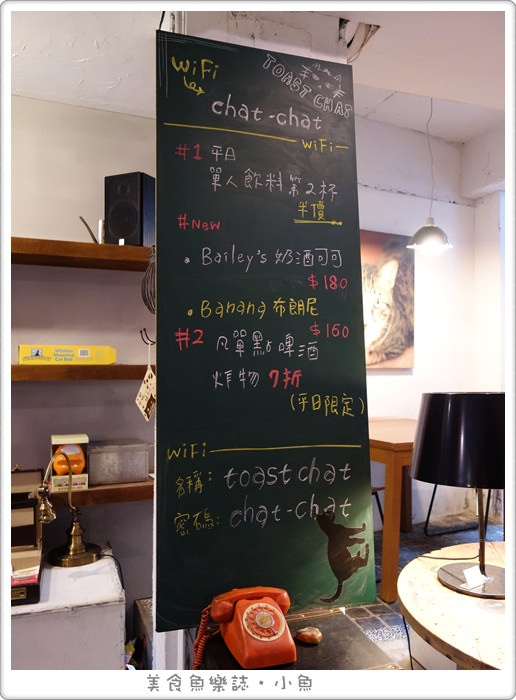 WiFi
TOAST CHAT
chat-chat
WiFi
#1 平日
單人飲料第2杯
半價
#New
• Bailey's 奶酒可可
$180
• Banana 布朗尼
$160
#2 凡單點啤酒
炸物 7折
(平日限定)
WiFi
名稱: toast chat
密碼: chat-chat
美食魚樂誌・小魚